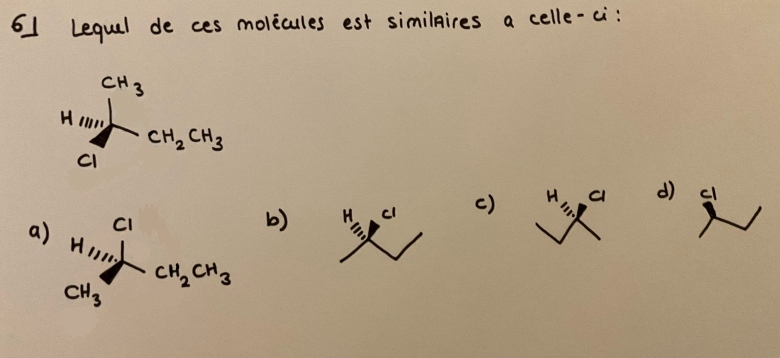 6) Lequel de ces molécules est similaires a celle-ci :
CH3
H
CH2CH3
Cl
a) Cl
H
CH2CH3
CH3
b) H Cl
c) H Cl
d) Cl